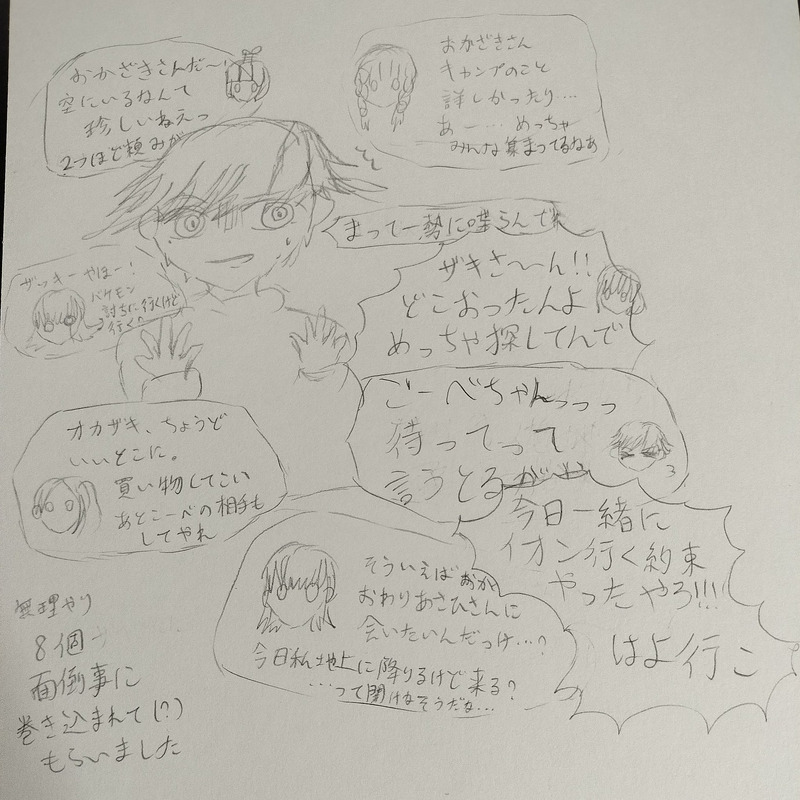 おかざきさんだ〜!
空にいるなんて
珍しいねえっ
2つほど頼みが
おかざきさん
キャンプのこと
詳しかったり…
あー…めっちゃ
みんな集まってるなぁ
まって一勢に喋らんでれ
ザッキーやほー!
バケモン
討ちに行くけど
行く?
ザキさ〜ん!!
どこおったんよ
めっちゃ探してんで
ごーべちゃんっっっ
待ってって
言うとるがや
オカザキ、ちょうど
いいとこに。
買い物してこい
あとこーべの相手も
してやれ
今日一緒に
イオン行く約束
やったやろ!!!
はよ行こ
そういえばおか
おわりあさひさんに
会いたいんだっけ…?
今日私地上に降りるけど来る?
…って聞けなそうだな…
無理やり
8個
面倒事に
巻き込まれて(?)
もらいました